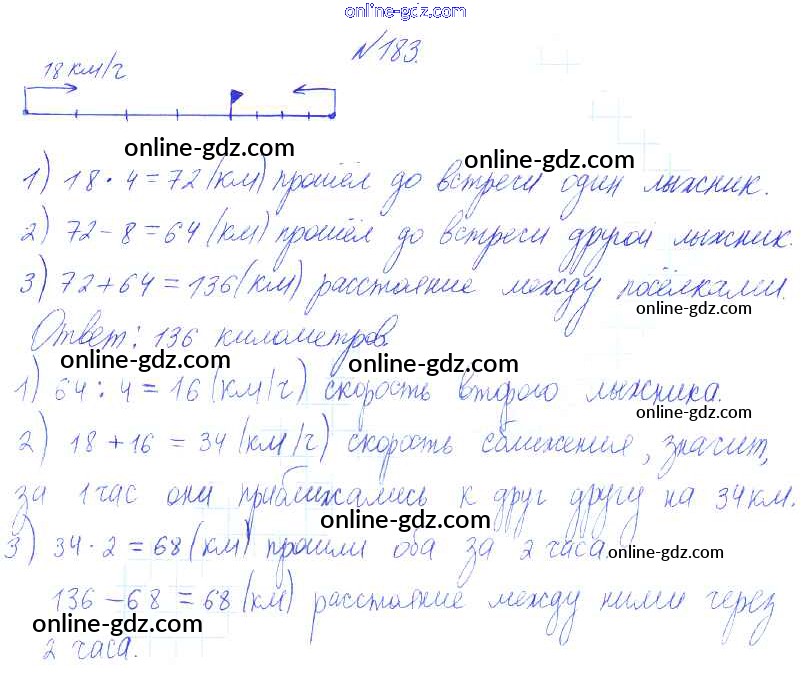 online-gdz.com
№183.
18 км/ч
online-gdz.com online-gdz.com
1) 18 · 4 = 72 (км) прошёл до встречи один лыжник.
2) 72 - 8 = 64 (км) прошёл до встречи другой лыжник.
3) 72 + 64 = 136 (км) расстояние между посёлками.
online-gdz.com
Ответ: 136 километров
online-gdz.com online-gdz.com
1) 64 : 4 = 16 (км/ч) скорость второго лыжника.
online-gdz.com
2) 18 + 16 = 34 (км/ч) скорость сближения, значит,
за 1 час они приближались к друг другу на 34 км.
online-gdz.com
3) 34 · 2 = 68 (км) прошли оба за 2 часа.
online-gdz.com
136 - 68 = 68 (км) расстояние между ними через
online-gdz.com online-gdz.com
2 часа.